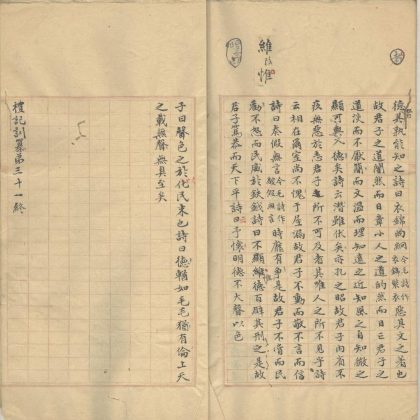 維改惟
德其孰能知之詩曰衣錦尚絅今毛詩作衣錦褧衣惡其文之著也
故君子之道闇然而日章小人之道的然而日亡君子之
道淡而不厭簡而文溫而理知遠之近知風之自知微之
顯可與入德矣詩云潛雖伏矣亦孔之昭故君子內省不
疚無惡於志君子之所不可及者其唯人之所不見乎詩
云相在爾室尚不愧于屋漏故君子不動而敬不言而信
詩曰奏假無言今詩作鬷假無言時靡有爭是故君子不賞而民
勸不怒而民威於鈇鉞詩曰不顯維德百辟其刑之是故
君子篤恭而天下平詩曰予懷明德不大聲以色
子曰聲色之於化民末也詩曰德輶如毛毛猶有倫上天
之載無聲無臭至矣
禮記訓纂第三十一終